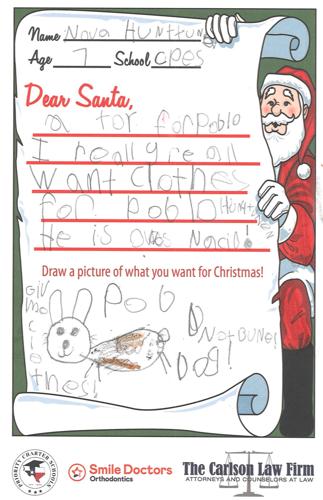 Name Nova Hunttung
Age 7 School CPES
Dear Santa,
a tor for pablo
I really reall
Want Clothes
for Pablo
He is Nacid!
Draw a picture of what you want for Christmas!
Pob
Not BUNE!
Dog!
PRIORITY CHARTER SCHOOLS
Smile Doctors
Orthodontics
The Carlson Law Firm
ATTORNEYS AND COUNSELORS AT LAW